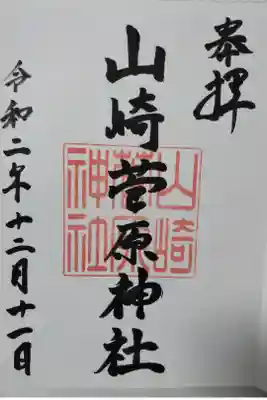 奉拝
山崎菅原神社
山崎菅原神社
令和二年十二月十一日